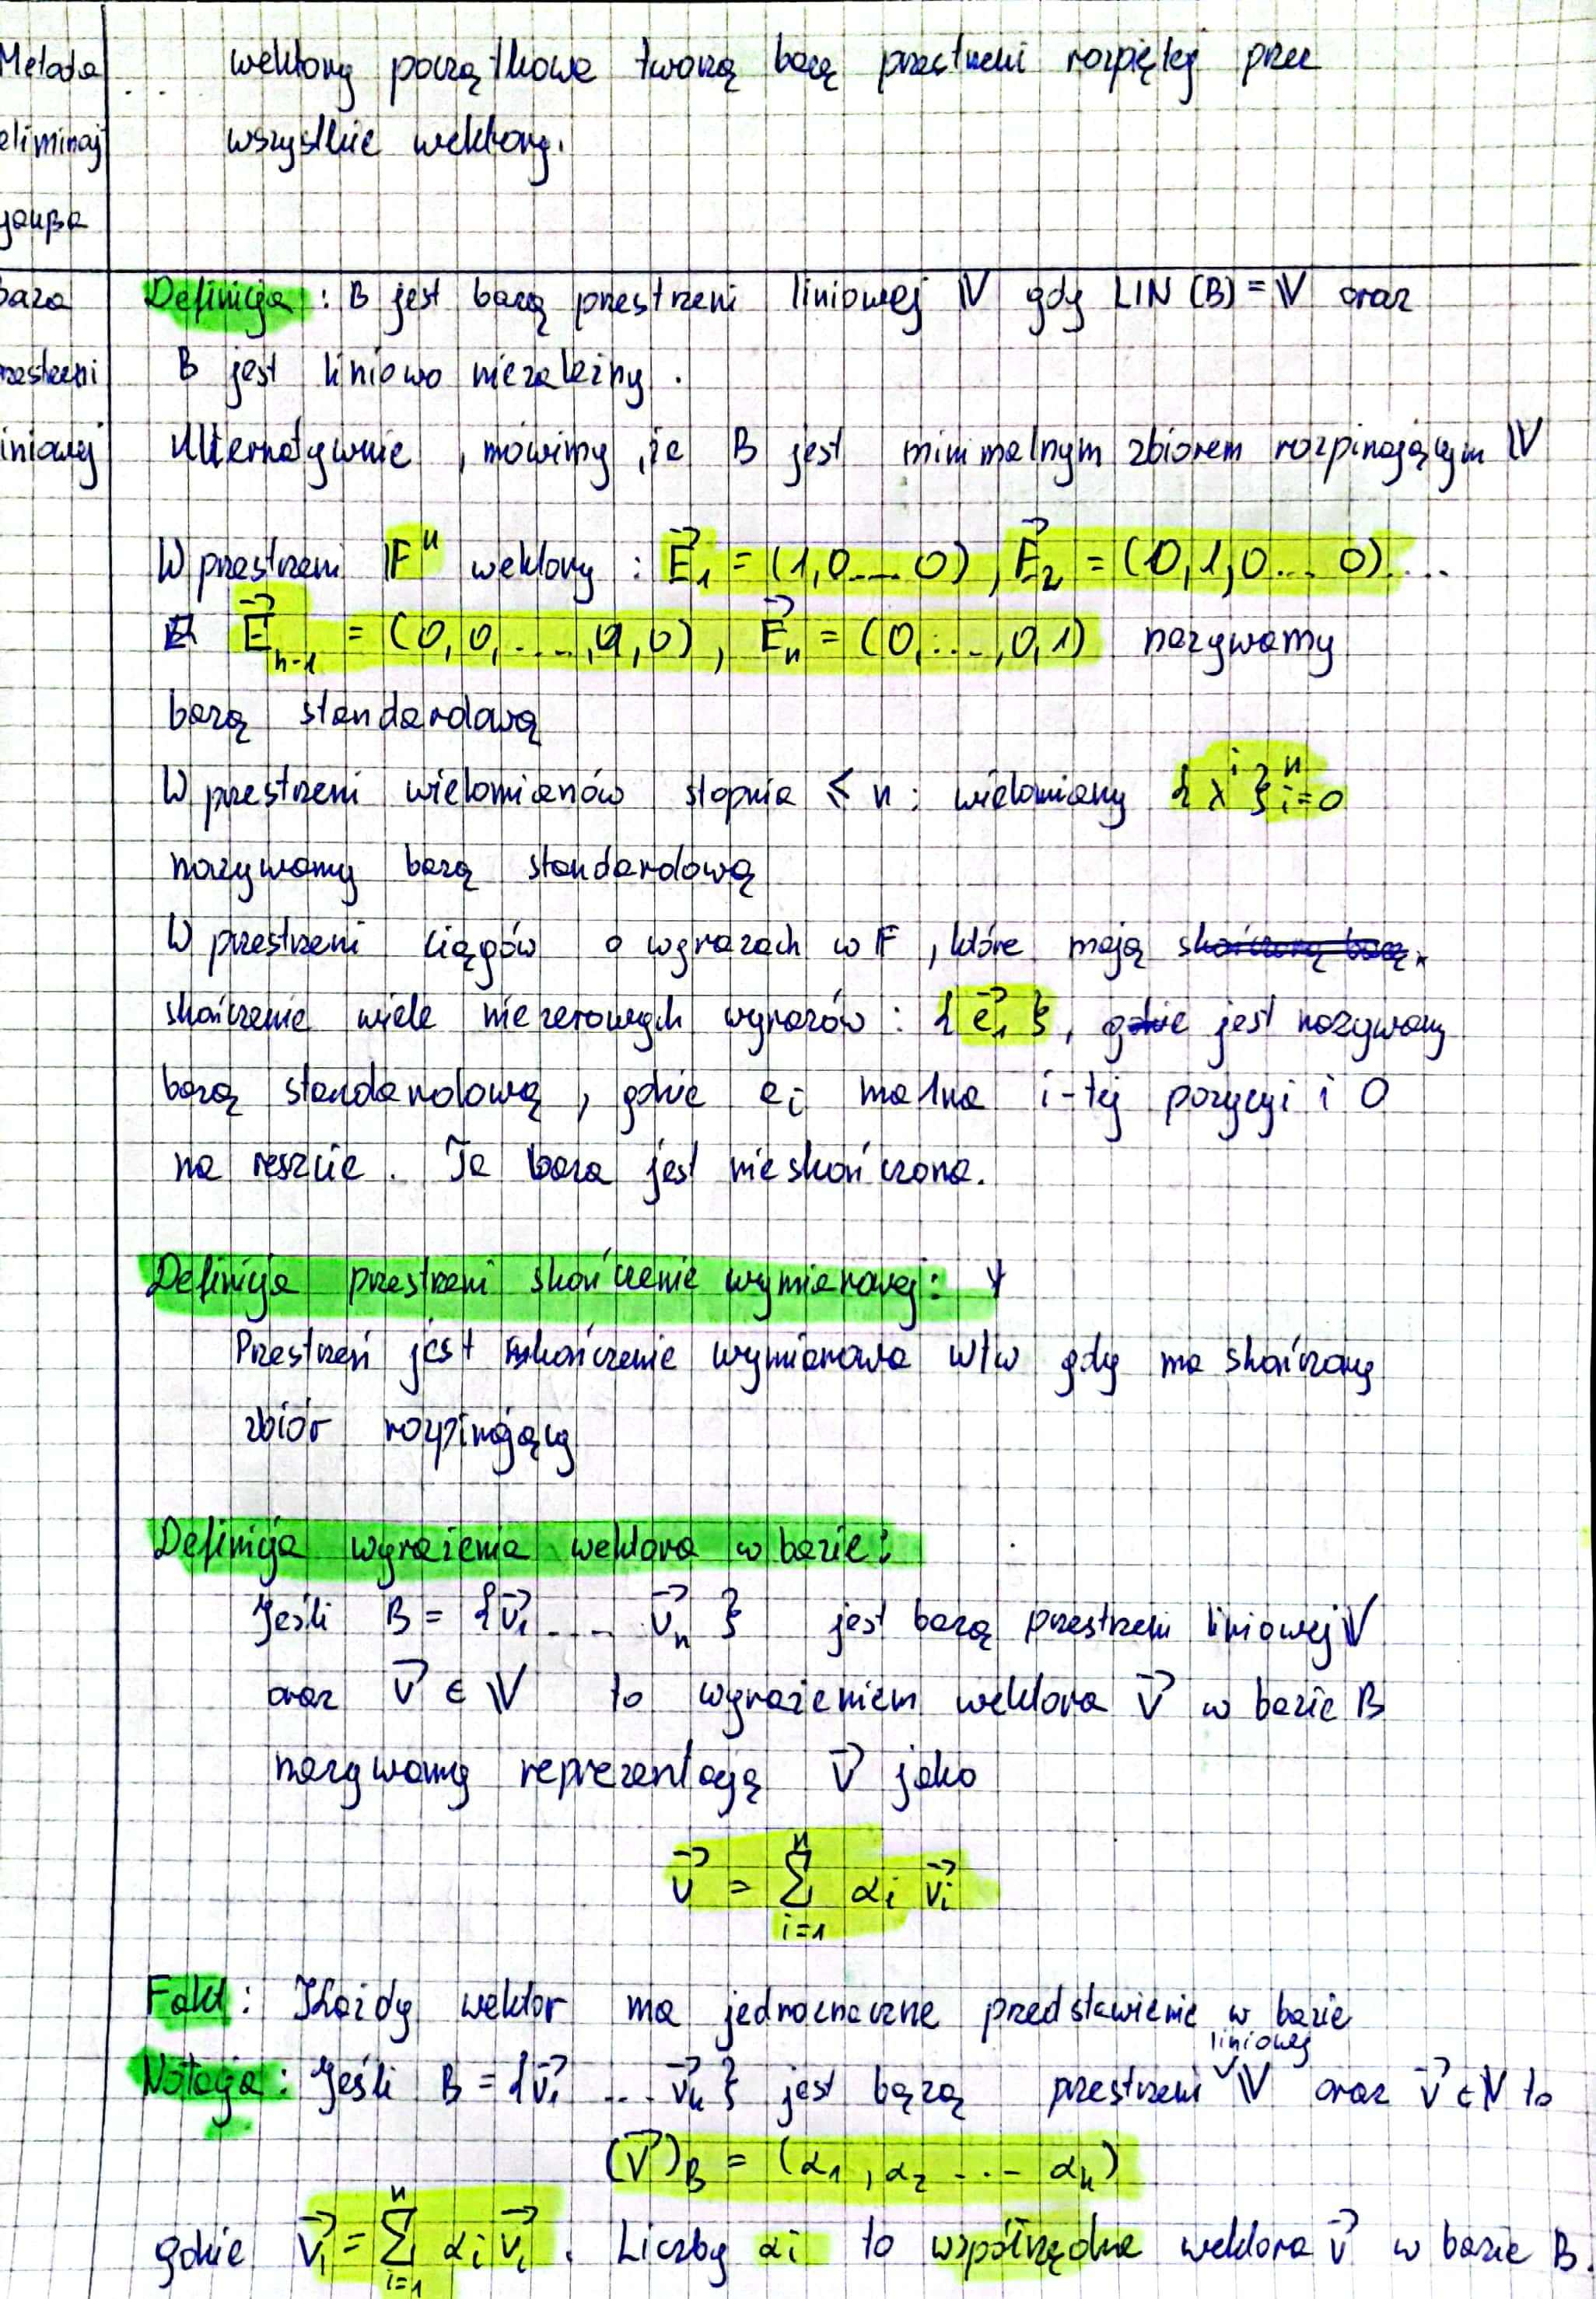 Metoda
eliminacj
gaußa
wektory początkowe tworzą bazą przestrzeni rozpiętej przez
wszystkie wektory.
baza
rzestrzeni
iniowej
Definicja : B jest bazą przestrzeni liniowej 𝕍 gdy LIN (B) = 𝕍 oraz
B jest liniowo niezależny .
Alternatywnie , mówimy ,że B jest minimalnym zbiorem rozpinającym 𝕍
W przestrzeni 𝔽ⁿ wektory : E⃗₁ = (1,0...0) , E⃗₂ = (0,1,0...0)....
E⃗ₙ₋₁ = (0,0,...,1,0) , E⃗ₙ = (0,...,0,1) nazywamy
bazą standardową
W przestrzeni wielomianów stopnia ≤ n : wielomiany { xⁱ }ⁿᵢ₌₀
nazywamy bazą standardową
W przestrzeni ciągów o wyrazach w 𝔽 , które mają skończoną bazą
skończenie wiele niezerowych wyrazów : { e⃗₁ } , gdzie jest nazywany
bazą standardową , gdzie eᵢ ma 1 na i-tej pozycji i 0
na reszcie . Ta baza jest nieskończona.
Definicja przestrzeni skończenie wymiarowej :
Przestrzeń jest skończenie wymiarowa wtw gdy ma skończony
zbiór rozpinający
Definicja wyrażenia wektora w bazie :
Jeśli B = {v⃗₁ .... v⃗ₙ } jest bazą przestrzeni liniowej 𝕍
oraz v⃗ ∈ 𝕍 to wyrażeniem wektora v⃗ w bazie B
nazywamy reprezentacją v⃗ jako
v⃗ = ∑ⁿᵢ₌₁ αᵢ v⃗ᵢ
Fakt : Każdy wektor ma jednoznaczne przedstawienie w bazie
Notacja : Jeśli B = {v⃗₁ ... v⃗ₙ } jest bązą przestrzeni liniowej 𝕍 oraz v⃗ ∈ 𝕍 to
(v⃗)_B = (α₁ , α₂ ... αₙ)
gdzie v⃗ᵢ = ∑ⁿᵢ₌₁ αᵢ v⃗ᵢ . Liczby αᵢ to współrzędne wektora v⃗ w bazie B.